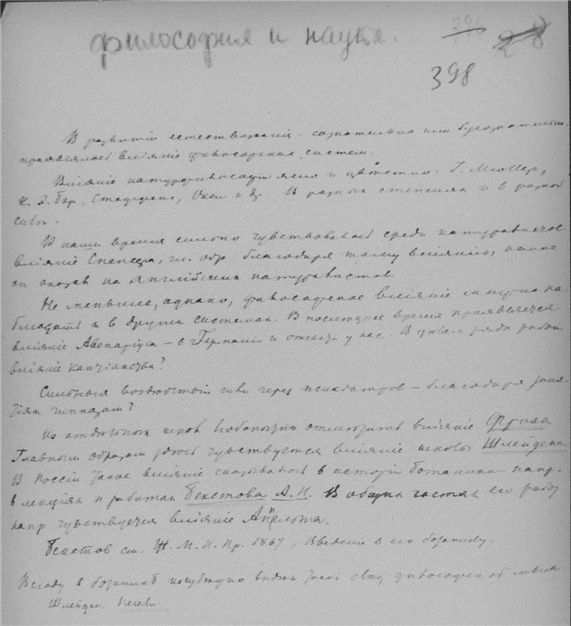 философия и наука.
398
28
В развитии естествознания – сознательно или бессознательно
проявлялось влияние философских систем.
Влияние натурфилософии ясно и
К. Э. Бэр, Стеффенс, Окен и др. В разной степени и в разной
силе.
В наше время сильно чувствовалось среди натуралистов
влияние Спенсера, гл. обр. благодаря тому влиянию, какое
он оказал на Английских натуралистов
Не меньшее, однако, философское влияние можно на
блюдать и в других системах. В последнее время проявляется
влияние Авенариуса – в Германии и отчасти у нас. В целом ряде работ
влияние кантианства?
через психиатров – благодаря
гипнозом?
Из отдельных школ любопытно отметить влияние Фриза
Главным образом здесь чувствуется влияние школы Шлейдена
В России такое влияние сказывалось в истории ботаники – напр.
в лекциях и работах Бекетова А. Н. В общих частях его работ
напр. чувствуется влияние Апельта.
Бекетов см. Ж. М. Н. Пр. 1867, Введение в его ботанику.
Всюду в ботанике
Шлейден